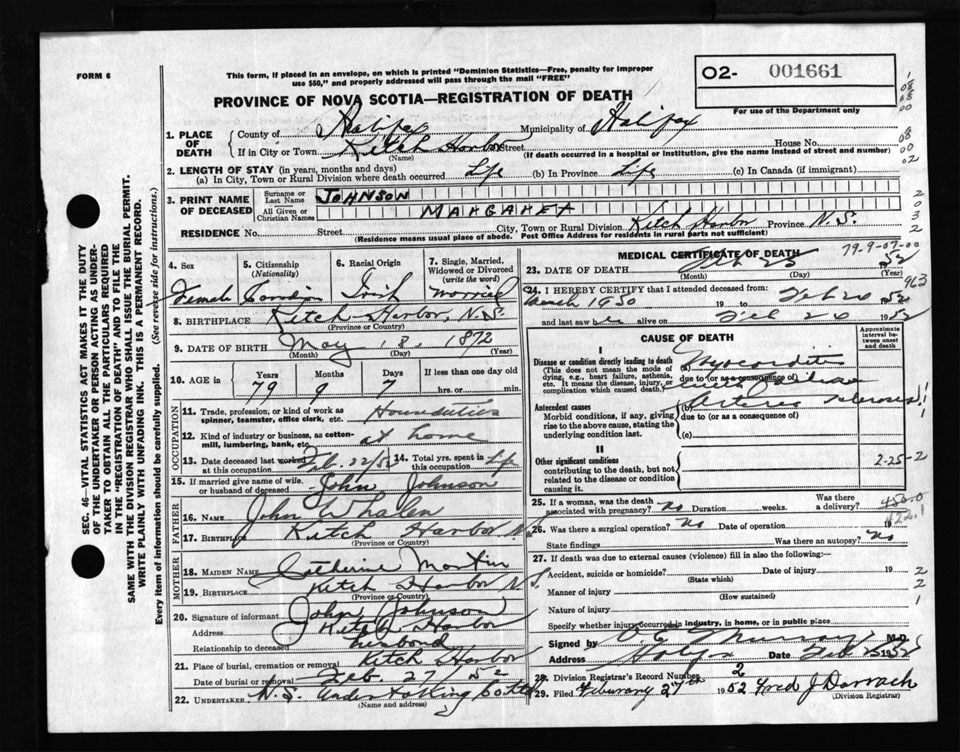 FORM 6
This form, if placed in an envelope, on which is printed "Dominion Statistics—Free, penalty for improper
use $50," and properly addressed will pass through the mail "FREE"
02- 001661
For use of the Department only
PROVINCE OF NOVA SCOTIA—REGISTRATION OF DEATH
1. PLACE OF DEATH
County of Halifax Municipality of Halifax
If in City or Town Ketch Harbor Street House No.
(Name) (If death occurred in a hospital or institution, give the name instead of street and number)
2. LENGTH OF STAY (in years, months and days)
(a) In City, Town or Rural Division where death occurred Life (b) In Province Life (c) In Canada (if immigrant)
3. PRINT NAME OF DECEASED
Surname or Last Name JOHNSON
All Given or Christian Names MARGARET
RESIDENCE No. Street City, Town or Rural Division Ketch Harbor Province N.S.
(Residence means usual place of abode. Post Office Address for residents in rural parts not sufficient)
4. Sex Female
5. Citizenship (Nationality)
6. Racial Origin Irish
7. Single, Married, Widowed or Divorced (write the word) Married
8. BIRTHPLACE Ketch Harbor, N.S.
(Province or Country)
9. DATE OF BIRTH May 18 1872
(Month) (Day) (Year)
10. AGE in Years Months Days If less than one day old
79 9 7 hrs. or min.
OCCUPATION
11. Trade, profession, or kind of work as spinner, teamster, office clerk, etc. House duties
12. Kind of industry or business, as cotton-mill, lumbering, bank, etc. at home
13. Date deceased last worked at this occupation Feb. 22/52 14. Total yrs. spent in this occupation Life
15. If married give name of wife or husband of deceased John Johnson
FATHER
16. NAME John Whalen
17. BIRTHPLACE Ketch Harbor N.S.
(Province or Country)
MOTHER
18. MAIDEN NAME Catherine Martin
19. BIRTHPLACE Ketch Harbor N.S.
(Province or Country)
20. Signature of informant John Johnson
Address Ketch Harbor
Relationship to deceased husband
21. Place of burial, cremation or removal Ketch Harbor
Date of burial or removal Feb. 27/52
22. UNDERTAKER N.S. Undertaking
(Name and address)
MEDICAL CERTIFICATE OF DEATH
79-9-07-00
23. DATE OF DEATH Feb 25 1952
(Month) (Day) (Year)
963
24. I HEREBY CERTIFY that I attended deceased from:
March 1950 19 to Feb 1952
and last saw her alive on Feb 1952
CAUSE OF DEATH
Approximate interval between onset and death
I
Disease or condition directly leading to death
(This does not mean the mode of dying, e.g., heart failure, asthenia, etc. It means the disease, injury, or complication which caused death.)
(a) Myocarditis
due to (or as consequence of)
Antecedent causes
Morbid conditions, if any, giving rise to the above cause, stating the underlying condition last.
(b) Arterio Sclerosis
due to (or as a consequence of)
(c)
II
Other significant conditions
contributing to the death, but not related to the disease or condition causing it.
2-25-2
25. If a woman, was the death associated with pregnancy? no Duration weeks. Was there a delivery?
26. Was there a surgical operation? no Date of operation 19
State findings Was there an autopsy? no
27. If death was due to external causes (violence) fill in also the following:—
Accident, suicide or homicide? Date of injury 19
(State which)
Manner of injury
(How sustained)
Nature of injury
Specify whether injury occurred in industry, in home, or in public place
Signed by Murray M.D.
Address Halifax Date Feb 25 1952
28. Division Registrar's Record Number 2
29. Filed February 27th 1952 Fred J Darrach
(Division Registrar)
SEC. 46—VITAL STATISTICS ACT MAKES IT THE DUTY
OF THE UNDERTAKER OR PERSON ACTING AS UNDER-
TAKER TO OBTAIN ALL THE PARTICULARS REQUIRED
IN THE "REGISTRATION OF DEATH" AND TO FILE THE
SAME WITH THE DIVISION REGISTRAR WHO SHALL ISSUE THE BURIAL PERMIT.
WRITE PLAINLY WITH UNFADING INK. THIS IS A PERMANENT RECORD.
Every item of information should be carefully supplied. (See reverse side for instructions.)